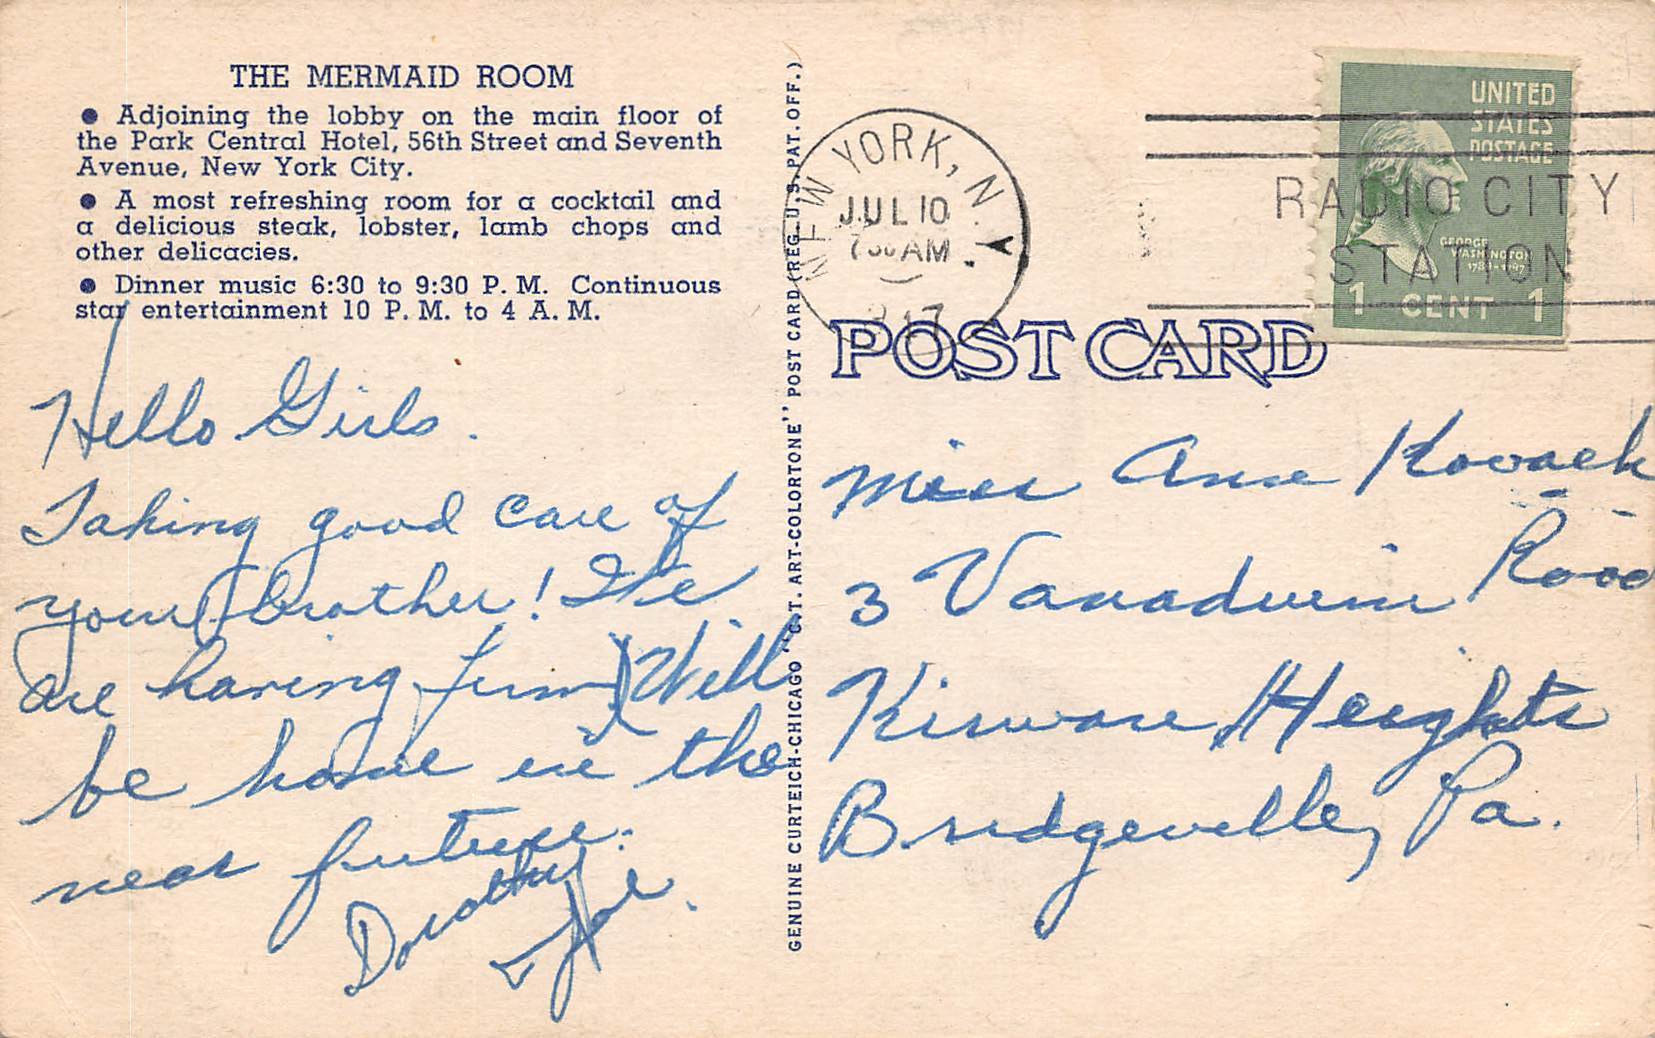 THE MERMAID ROOM
● Adjoining the lobby on the main floor of
the Park Central Hotel, 56th Street and Seventh
Avenue, New York City.
● A most refreshing room for a cocktail and
a delicious steak, lobster, lamb chops and
other delicacies.
● Dinner music 6:30 to 9:30 P. M. Continuous
star entertainment 10 P. M. to 4 A. M.
Hello Girls.
Taking good care of
your brother! We
are having fun Will
be home in the
near future.
Dorothy
Joe.
GENUINE CURTEICH-CHICAGO "C.T. ART-COLORTONE" POST CARD (REG. U.S. PAT. OFF.)
NEW YORK, N.Y.
JUL 10
7 30 AM
RADIO CITY
STATION
UNITED
STATES
POSTAGE
GEORGE
WASHINGTON
1789-1797
1 CENT 1
POST CARD
Miss Ann Kovach
3 Road
Kirwan Heights
Bridgeville, Pa.